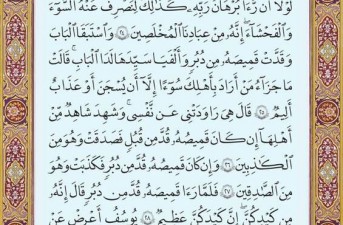 لَوْلَآ أَن رَّءَا بُرْهَٰنَ رَبِّهِۦ كَذَٰلِكَ لِنَصْرِفَ عَنْهُ ٱلسُّوٓءَ
وَٱلْفَحْشَآءَ إِنَّهُۥ مِنْ عِبَادِنَا ٱلْمُخْلَصِينَ ٢٤ وَٱسْتَبَقَا ٱلْبَابَ
وَقَدَّتْ قَمِيصَهُۥ مِن دُبُرٍ وَأَلْفَيَا سَيِّدَهَا لَدَا ٱلْبَابِ قَالَتْ
مَا جَزَآءُ مَنْ أَرَادَ بِأَهْلِكَ سُوٓءًا إِلَّآ أَن يُسْجَنَ أَوْ عَذَابٌ
أَلِيمٌ ٢٥ قَالَ هِىَ رَٰوَدَتْنِى عَن نَّفْسِى وَشَهِدَ شَاهِدٌ مِّنْ
أَهْلِهَآ إِن كَانَ قَمِيصُهُۥ قُدَّ مِن قُبُلٍ فَصَدَقَتْ وَهُوَ مِنَ
ٱلْكَٰذِبِينَ ٢٦ وَإِن كَانَ قَمِيصُهُۥ قُدَّ مِن دُبُرٍ فَكَذَبَتْ وَهُوَ
مِنَ ٱلصَّٰدِقِينَ ٢٧ فَلَمَّا رَءَا قَمِيصَهُۥ قُدَّ مِن دُبُرٍ قَالَ إِنَّهُۥ
مِن كَيْدِكُنَّ إِنَّ كَيْدَكُنَّ عَظِيمٌ ٢٨ يُوسُفُ أَعْرِضْ عَنْ